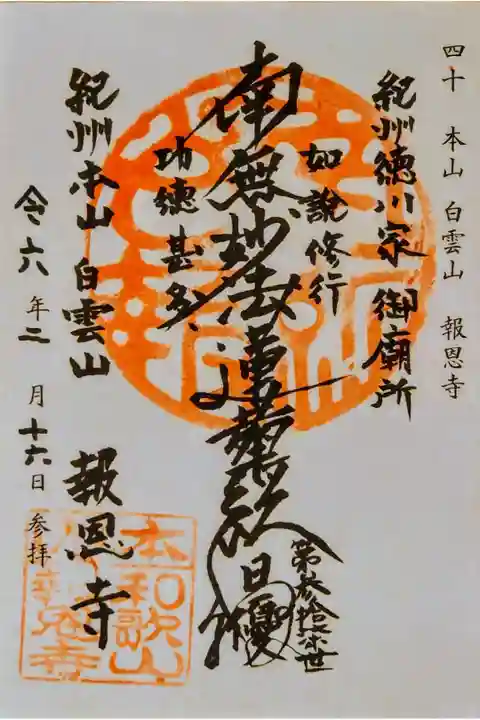 四十 本山 白雲山 報恩寺
紀州徳川家 御廟所
如說修行
南無妙法蓮華経 日優
第参拾七世
功徳甚多
紀州本山 白雲山 報恩寺
令六年二月十六日 参拝
本和歌山
報恩寺